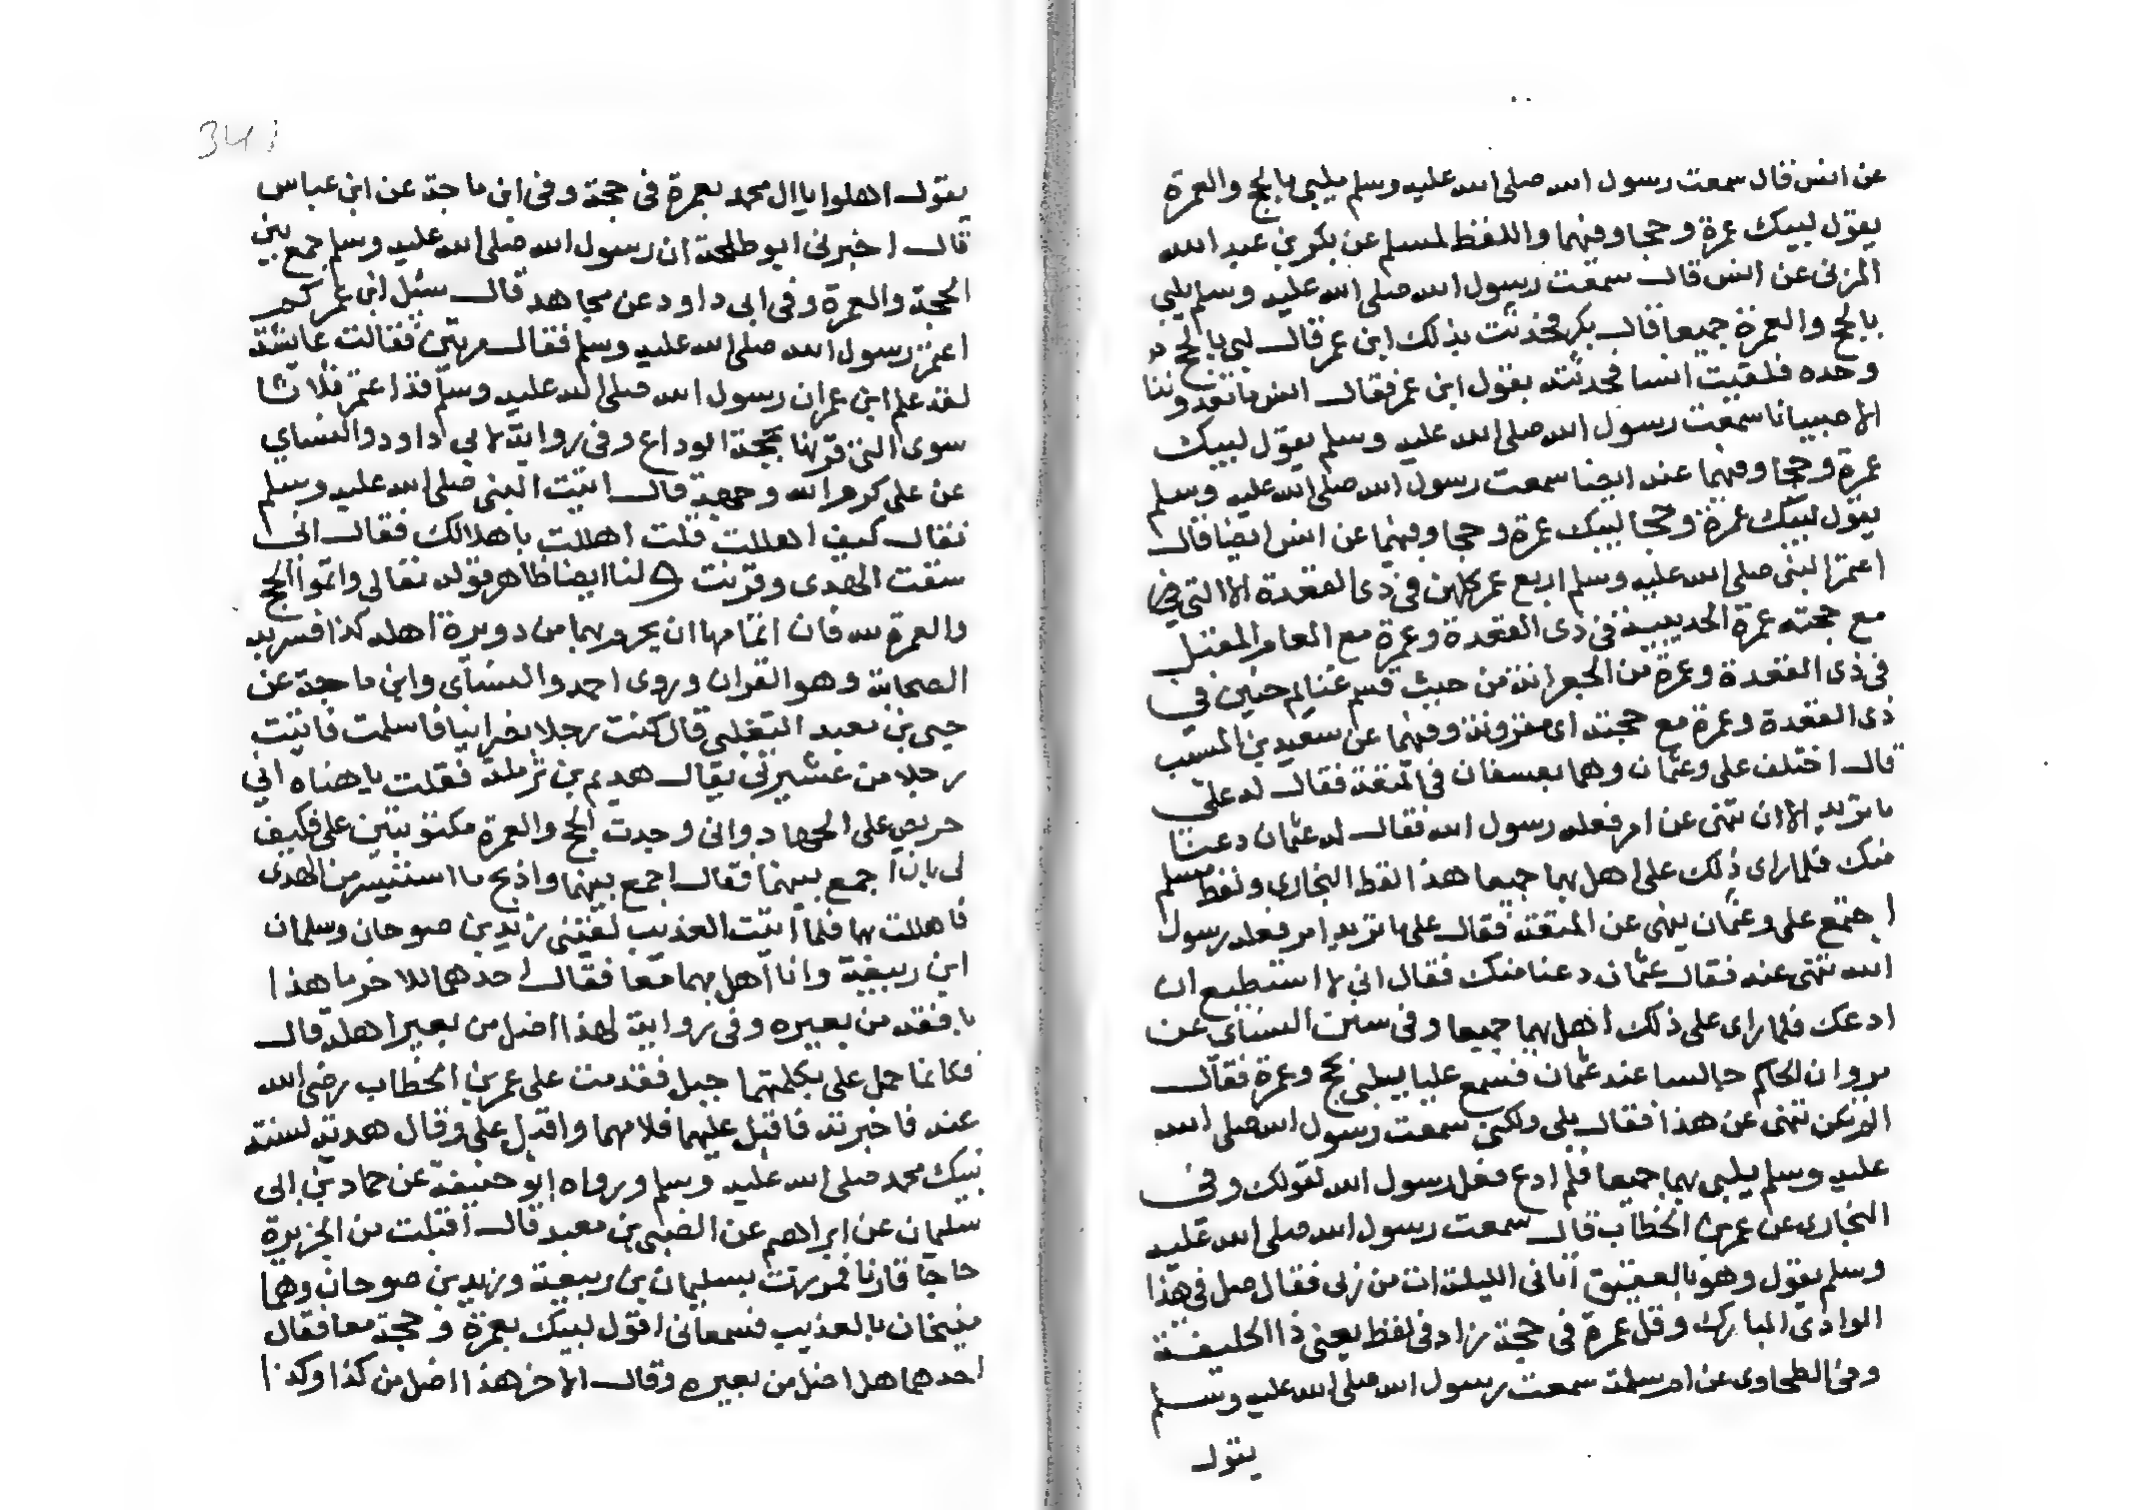 عن انس قال سمعت رسول الله صلى الله عليه وسلم يلبي بالحج والعمرة
يقول لبيك عمرة وحجا وفيهما واللفظ لمسلم عن بكر بن عبد الله
المزنى عن انس قال سمعت رسول الله صلى الله عليه وسلم يلبي
بالحج والعمرة جميعا قال بكر فحدثت بذلك ابن عمر فقال لبى بالحج
وحده فلقيت انسا فحدثته بقول ابن عمر فقال انس ما تعدوننا
الا صبيانا سمعت رسول الله صلى الله عليه وسلم يقول لبيك
عمرة وحجا وفيهما عنه ايضا سمعت رسول الله صلى الله عليه وسلم
يقول لبيك عمرة وحجا لبيك عمرة وحجا وفيهما عن انس ايضا قال
اعتمر النبي صلى الله عليه وسلم اربع عمر كلهن فى ذى القعدة الا التي
مع حجته عمرة الحديبية فى ذى القعدة وعمرة مع العام المقبل
فى ذى القعدة وعمرة من الجعرانة من حيث قسم غنايم حنين فى
ذى القعدة وعمرة مع حجته اى مقرونة وفيهما عن سعيد بن المسيب
قال اختلف على وعثمان وهما بعسفان فى المتعة فقال له على
ما تريد الا ان تنهى عن امر فعله رسول الله فقال له عثمان دعنا
منك فلما راى ذلك على اهل بهما جميعا هذا لفظ البخارى ولفظ مسلم
اجتمع على وعثمان ينهى عن المتعة فقال على ما تريد امر فعله رسول
الله تنهى عنه فقال عثمان دعنا منك فقال اني لا استطيع ان
ادعك فلما راى على ذلك اهل بهما جميعا وفى سنن النساي عن
مروان الحكم جالسا عند عثمان فسمع عليا يلبي بحج وعمرة فقال
الم نكن تنهى عن هذا فقال بلى ولكني سمعت رسول الله صلى الله
عليه وسلم يلبي بهما جميعا فلم ادع فعل رسول الله لقولك وفى
البخارى عن عمر بن الخطاب قال سمعت رسول الله صلى الله عليه
وسلم يقول وهو بالعقيق اتانى الليلة ات من ربى فقال صل فى هذا
الوادى المبارك وقل عمرة فى حجة زاد فى لفظ يعنى ذا الحليفة
وفى الطحاوى عن ام سلمة سمعت رسول الله صلى الله عليه وسلم
يقول
341
يقول اهلوا يا ال محمد بعمرة فى حجة وفى ابن ماجة عن ابن عباس
قال اخبرنى ابو طلحة ان رسول الله صلى الله عليه وسلم جمع بين
الحجة والعمرة وفى ابى داود عن مجاهد قال سئل ابن عمر كم
اعتمر رسول الله صلى الله عليه وسلم فقال مرتين فقالت عائشة
لقد علم ابن عمر ان رسول الله صلى الله عليه وسلم قد اعتمر ثلاثا
سوى التى قرنها بحجة الوداع وفى رواية لابى داود والنساي
عن على كرم الله وجهه قال اتيت النبي صلى الله عليه وسلم
فقال كيف اهللت قلت اهللت باهلالك فقال انى
سقت الهدى وقرنت ولنا ايضا ظاهر قوله تعالى واتموا الحج
والعمرة لله فان اتمامهما ان يحرم بهما من دويرة اهله كذا فسر به
الصحابة وهو القران وروى احمد والنسآى وابن ماجة عن
صبى بن معبد التغلبى قال كنت رجلا نصرانيا فاسلمت فاتيت
رجلا من عشيرتى يقال هديم بن ثرملة فقلت ياهناه انى
حريص على الجهاد وانى وجدت الحج والعمرة مكتوبتين على فكيف
لى بان اجمع بينهما فقال اجمع بينهما واذبح ما استيسر من الهدى
فاهللت بهما فلما اتيت العذيب لقينى زيد بن صوحان وسلمان
ابن ربيعة وانا اهل بهما معا فقال احدهما للاخر ما هذا
بافقه من بعيره وفى رواية لهذا اضل من بعير اهله قال
فكانما حمل على بكلمتهما جبل فقدمت على عمر بن الخطاب رضى الله
عنه فاخبرته فاقبل عليهما فلامهما واقبل على وقال هديت لسنة
نبيك محمد صلى الله عليه وسلم ورواه ابو حنيفة عن حماد بن ابى
سلمان عن ابراهيم عن الصبى بن معبد قال اقبلت من الجزيرة
حاجا قارنا فمررت بسليمان بن ربيعة وزيد بن صوحان وهما
منيخان بالعذيب فسمعانى اقول لبيك بعمرة وحجة معا فقال
احدهما هذا اضل من بعيره وقال الاخر هذا اضل من كذا وكذا